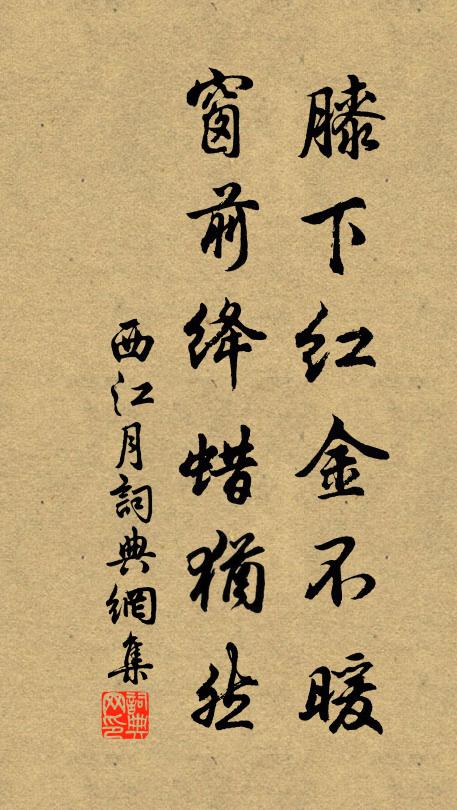 膝下红金不暖
窗前绛蜡犹然
西江月詞典網集
詞典网印